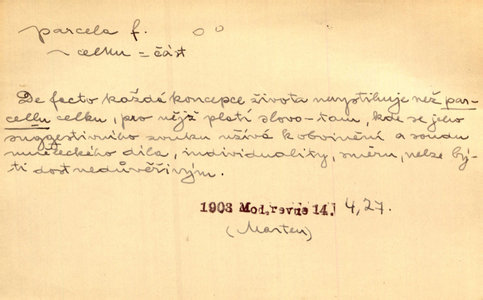 parcela f.
~ celku = část
De facto každé koncepce života nevystihuje než par-
cellu celku, pro nějž platí slovo - tam, kde se jeho
suggestivního zvuku užívá k obvinění a soudu
uměleckého díla, individuality, směru, nelze bý-
ti dost nedůvěřivým.
1903 Mod. revue 14. 4,27.
(Marten)